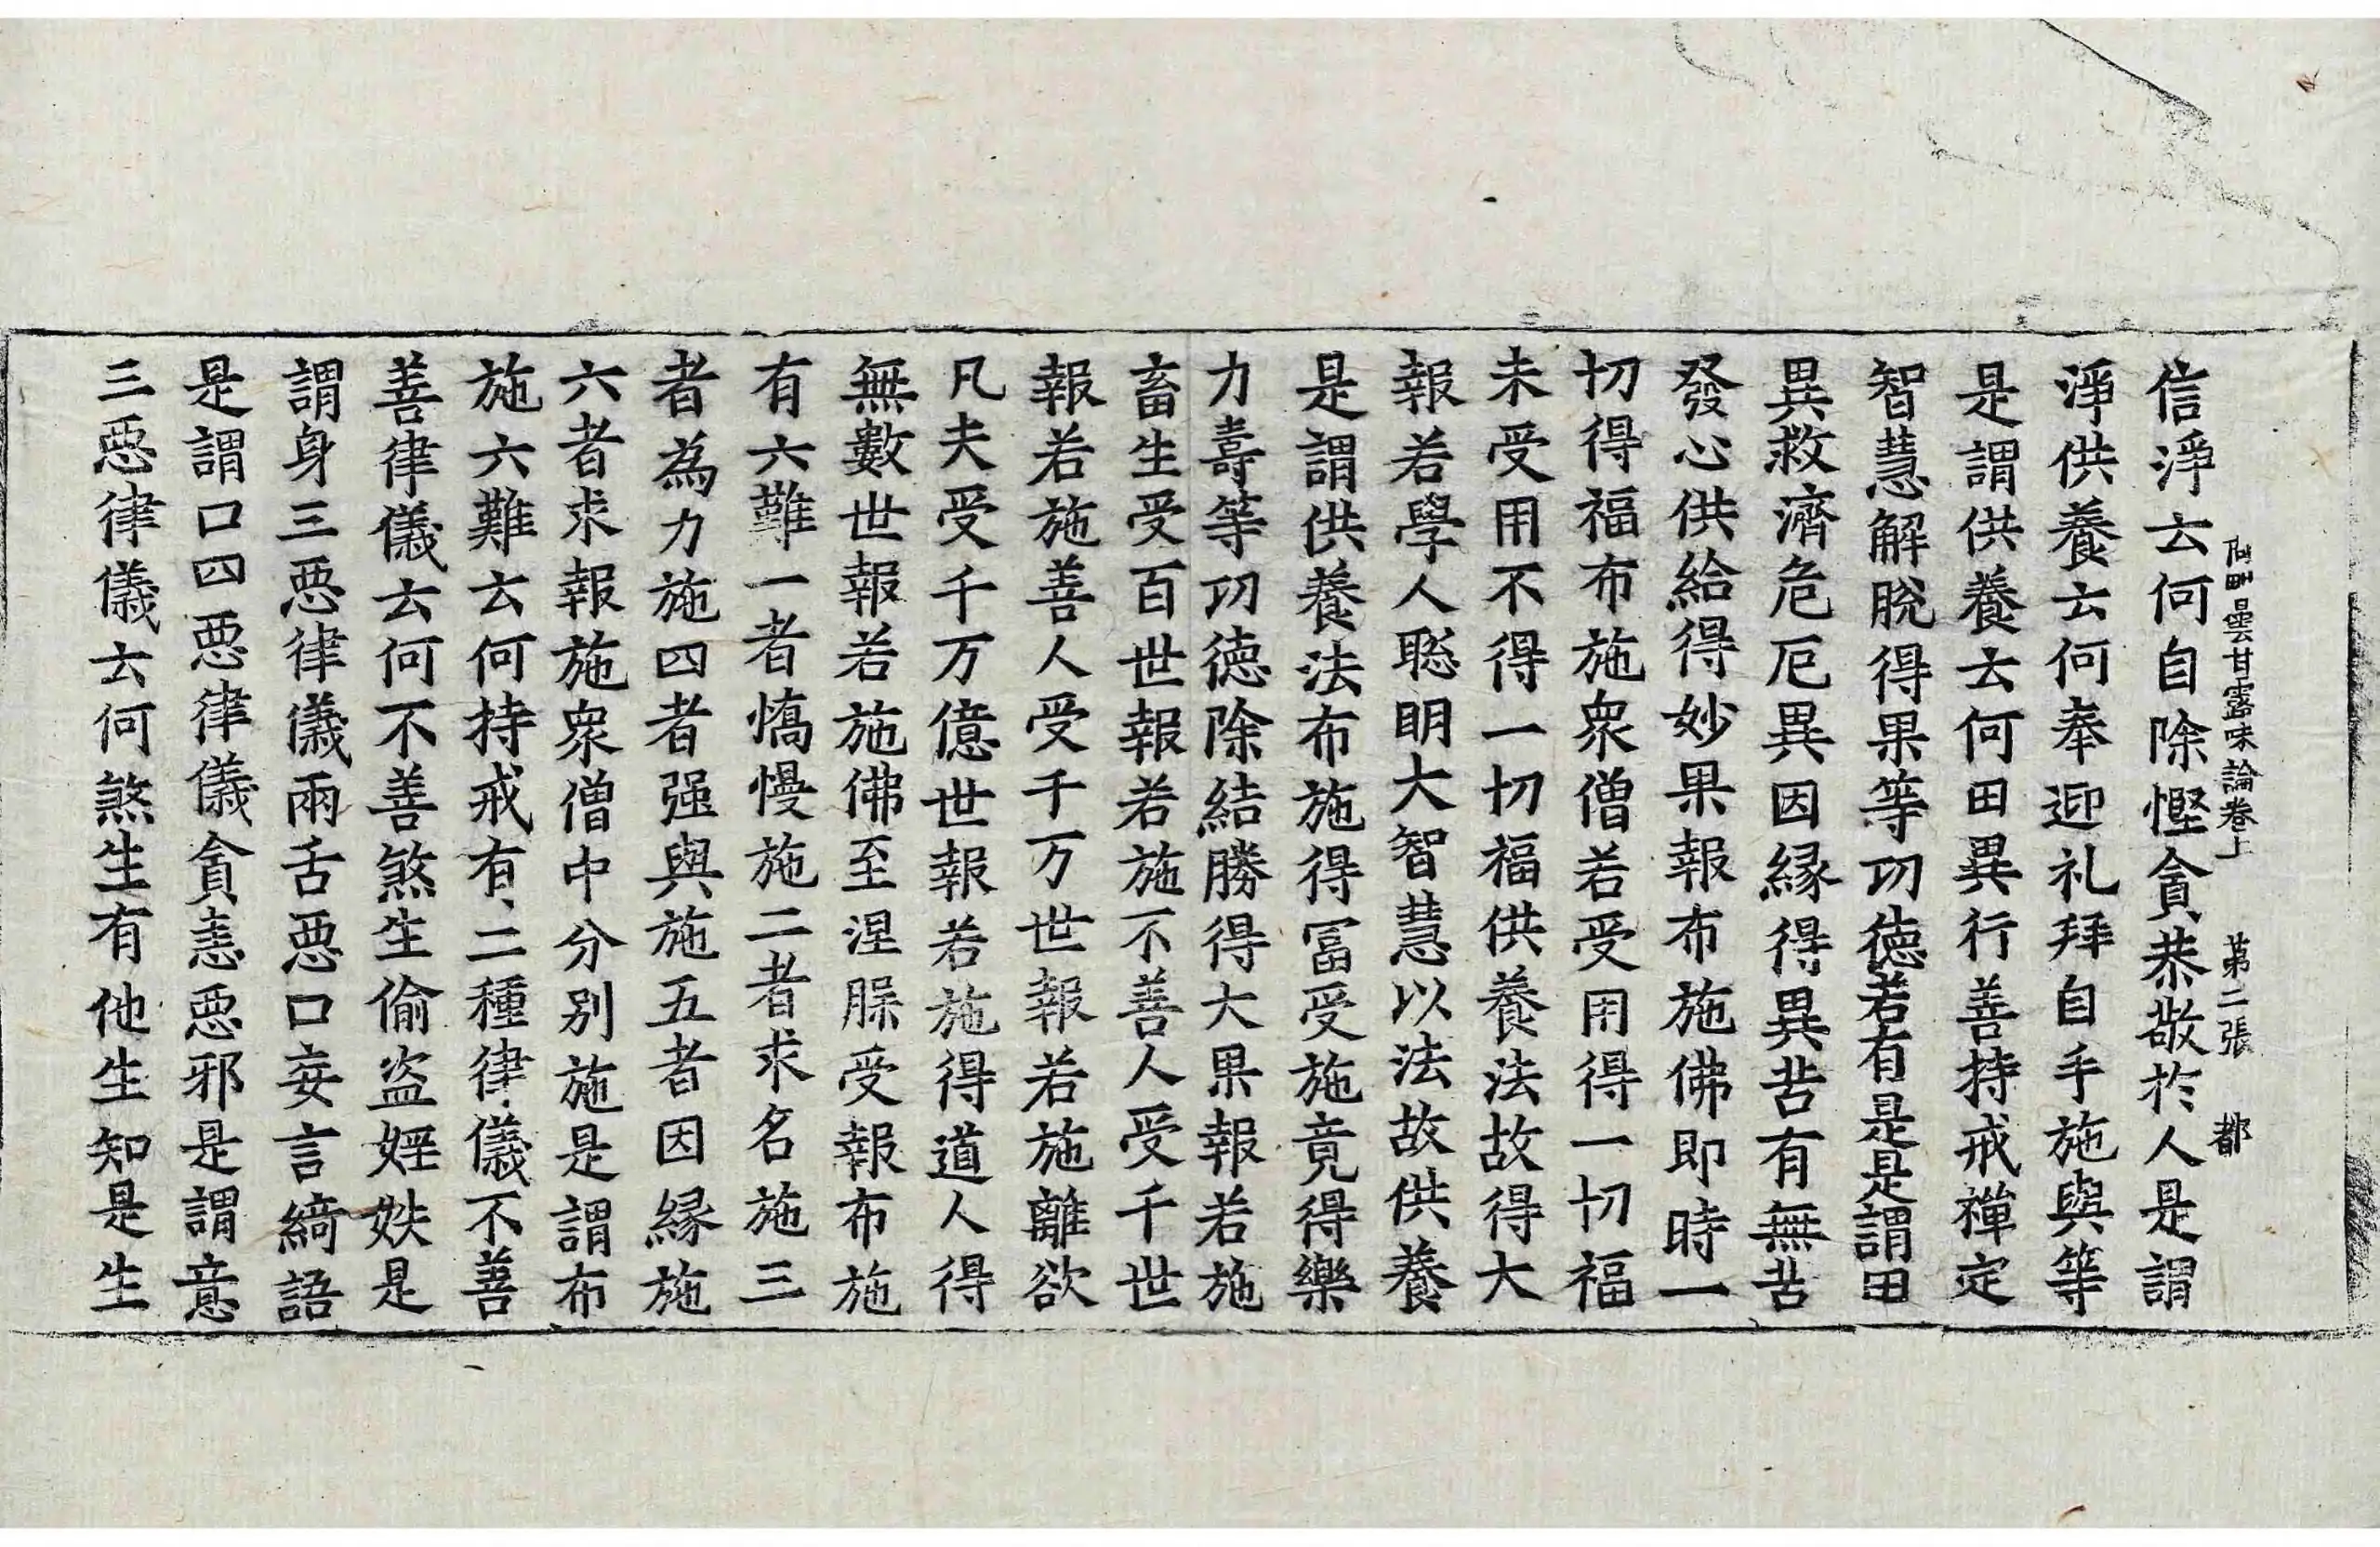 阿毗曇甘露味論卷上　第二張　都
信淨云何自除慳貪恭敬於人是謂
淨供養云何奉迎礼拜自手施與等
是謂供養云何田異行善持戒禪定
智慧解脫得果等功德若有是是謂田
異救濟危厄異因緣得異苦有無苦
發心供給得妙果報布施佛即時一
切得福布施衆僧若受用得一切福
未受用不得一切福供養法故得大
報若學人聡明大智慧以法故供養
是謂供養法布施得冨受施竟得樂
力壽等功德除結勝得大果報若施
畜生受百世報若施不善人受千世
報若施善人受千万世報若施離欲
凡夫受千万億世報若施得道人得
無數世報若施佛至涅槃受報布施
有六難一者憍慢施二者求名施三
者為力施四者强與施五者因緣施
六者求報施衆僧中分別施是謂布
施六難云何持戒有二種律儀不善
善律儀云何不善煞生偷盜婬妷是
謂身三惡律儀兩舌惡口妄言綺語
是謂口四惡律儀貪恚惡邪是謂意
三惡律儀云何煞生有他生知是生